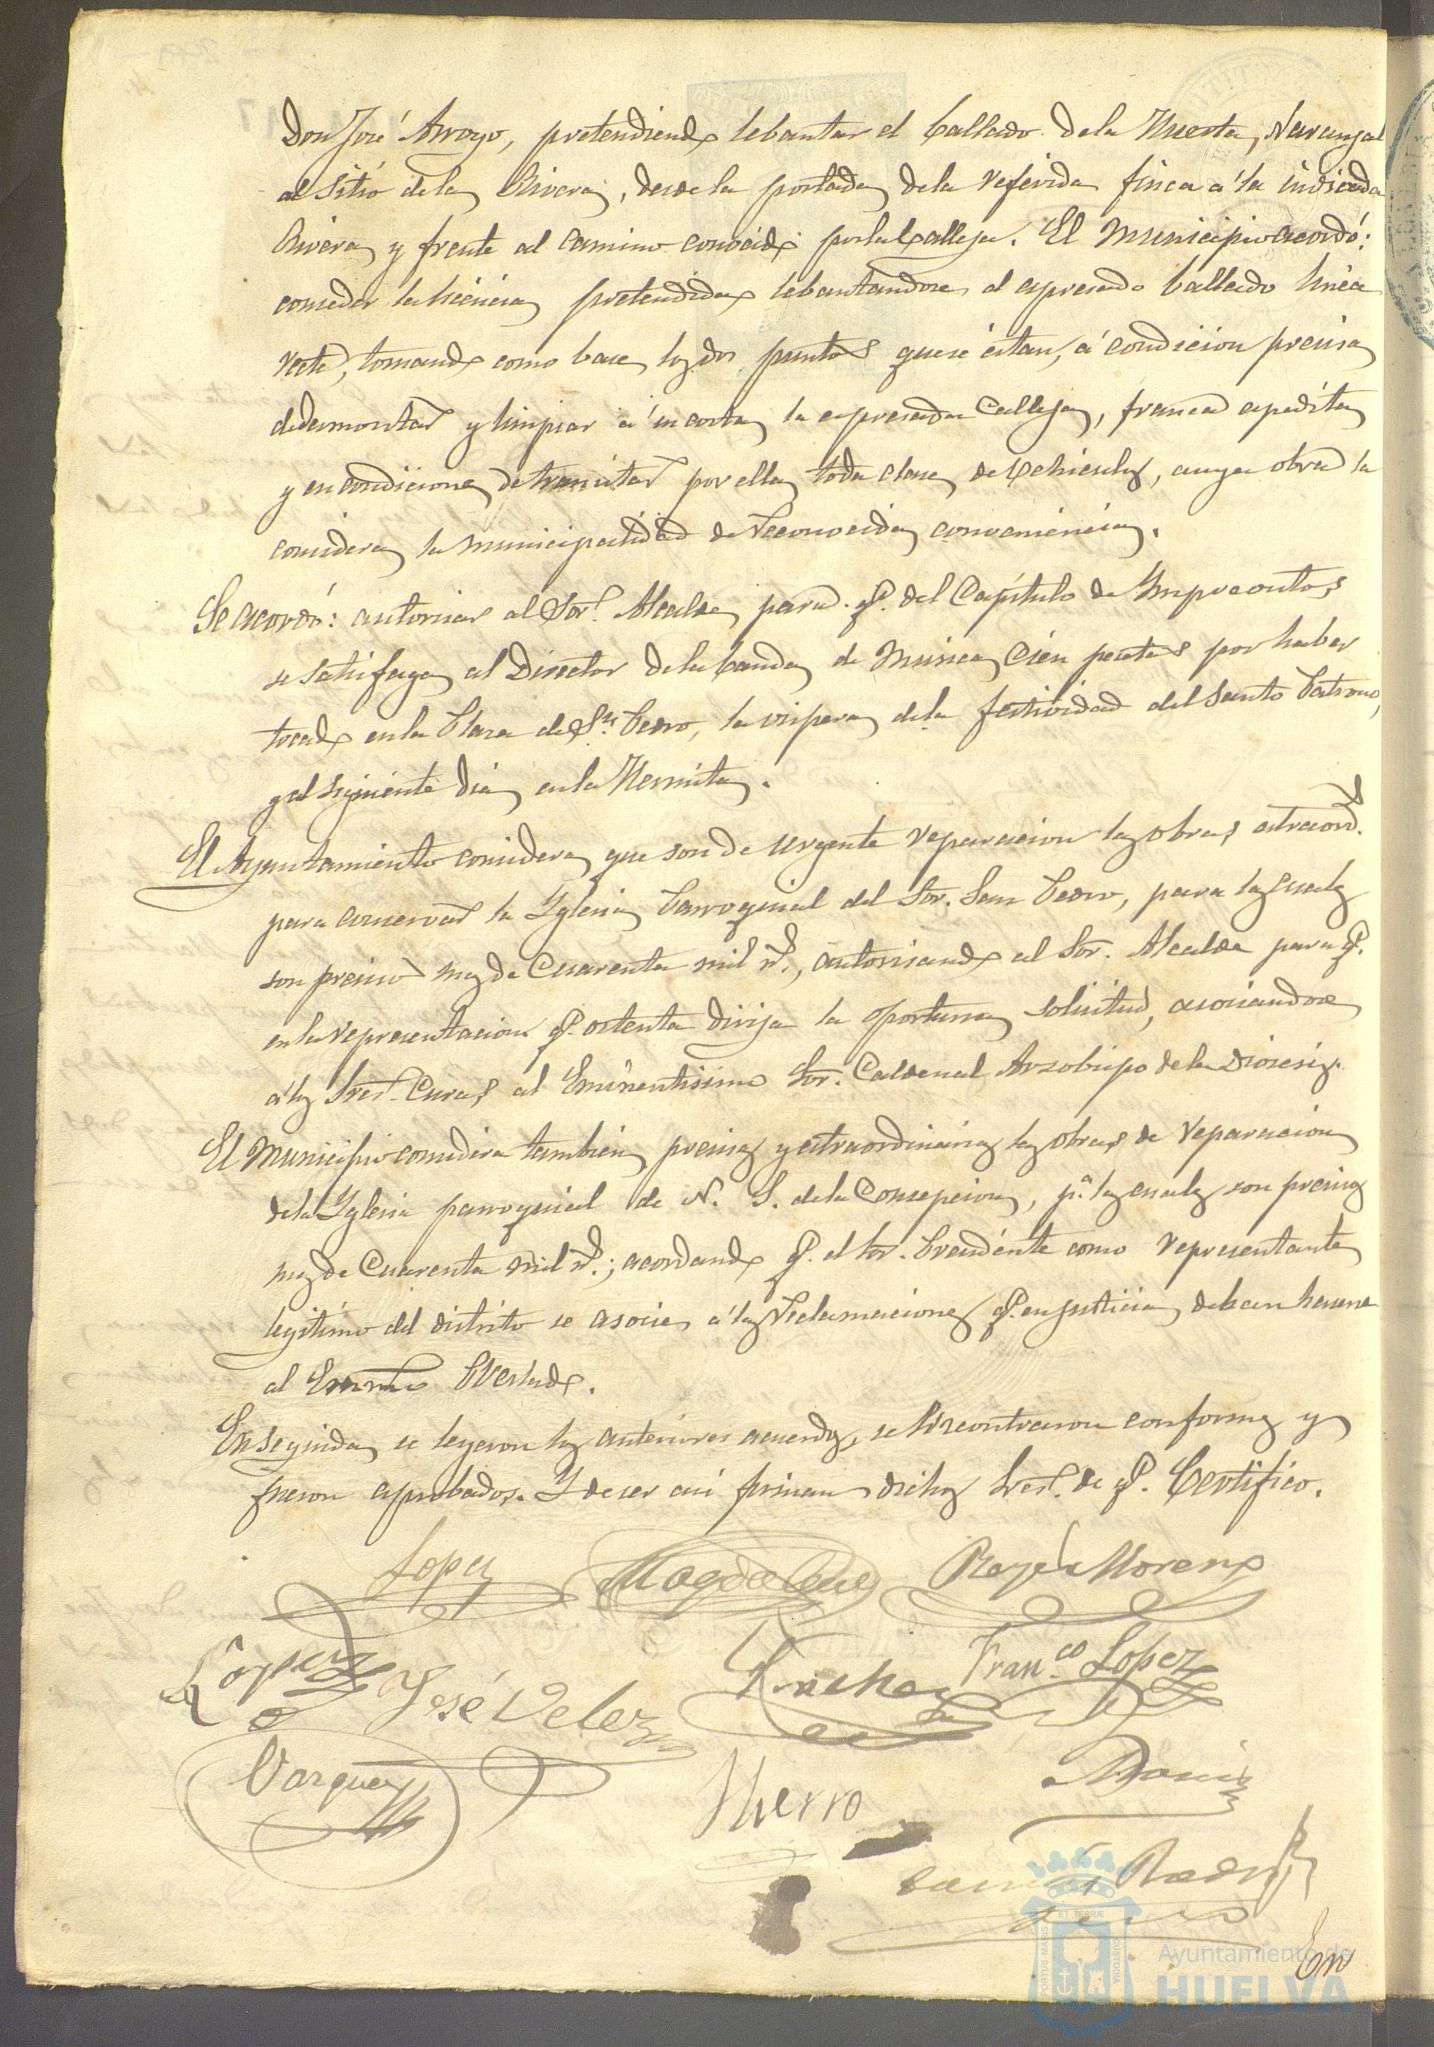 Don José Arroyo, pretendiendo lebantar el ballado de la Huerta, Naranjal
al sitio de la Rivera, desde la portada de la referida finca á la indicada
Rivera y frente al camino conocido por la Calleja. El Municipio acordó:
conceder la licencia pretendida, lebantandose el apresado ballado linea
recta, tomando como base los dos puntos que se citan, á condicion precisa
de desmontar y limpiar á su costa la espresada Calleja, franca espedita
y en condiciones de transitar por ella toda clase de vehiculos, cuya obra la
considera la municipalidad de reconocida conveniencia.
Se acordó: autorizar al Sor. Alcalde, para q. del Capítulo de Imprevistos
se satisfaga al Director de la banda de Musica Cien pesetas por haber
tocado en la Plaza de Sn. Pedro, la vispera de la festividad del Santo Patrono,
y al siguiente dia en la Hermita.
El Ayuntamiento considera que son de urgente reparacion las obras estraord.s
para conservar la Yglesia Parroquial del Sor. San Pedro, para las cuales
son precisos mas de Cuarenta mil rs., autorizando al Sor. Alcalde para q.
en la representacion q. ostenta dirija la oportuna solicitud, asociandose
á los Sres. Curas, al Eminentisimo Sor. Caldenal Arzobispo de la Diocesis.
El Municipio considera tambien precisas y estraordinarias las obras de reparacion
de la Yglesia parroquial de N. S. de la Consepcion, pa. las cuales son precisos
mas de Cuarenta mil rs.; acordando q. el Sor. Presidente como representante
legitimo del distrito se asocie á las reclamaciones q. en justicia deban hacerse
al Emmo Prelado.
En seguida se leyeron los anteriores acuerdos, se encontraron conformes y
fueron aprobados. Y de ser asi firman dichos Sres. de q. Certifico.
Lopez Magdalena Rozo Moreno
Lopez José Velez Franco. Lopez
Vazquez Hierro
En
PORTUS MARIS ET TERRAE CUSTODIA
Ayuntamiento de
HUELVA